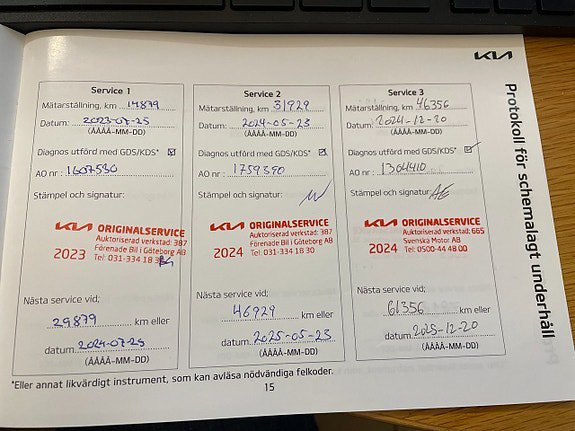 KIA
Protokoll för schemalagt underhåll
Service 1
Mätarställning, km 14879
Datum: 2023-07-25
(ÅÅÅÅ-MM-DD)
Diagnos utförd med GDS/KDS*
AO nr : 1607530
Stämpel och signatur:
KIA ORIGINALSERVICE
Auktoriserad verkstad: 387
2023 Förenade Bil i Göteborg AB
Tel: 031-334 18 30
Nästa service vid;
29879 km eller
datum. 2024-07-25
(ÅÅÅÅ-MM-DD)
Service 2
Mätarställning, km 31929
Datum: 2024-05-23
(ÅÅÅÅ-MM-DD)
Diagnos utförd med GDS/KDS*
AO nr : 1759390
Stämpel och signatur:
KIA ORIGINALSERVICE
Auktoriserad verkstad: 387
2024 Förenade Bil i Göteborg AB
Tel: 031-334 18 30
Nästa service vid;
46929 km eller
datum. 2025-05-23
(ÅÅÅÅ-MM-DD)
Service 3
Mätarställning, km 46356
Datum: 2024-12-20
(ÅÅÅÅ-MM-DD)
Diagnos utförd med GDS/KDS*
AO nr : 1304410
Stämpel och signatur:
KIA ORIGINALSERVICE
Auktoriserad verkstad: 665
2024 Svenska Motor AB
Tel: 0500-44 48 00
Nästa service vid;
61356 km eller
datum. 2025-12-20
(ÅÅÅÅ-MM-DD)
*Eller annat likvärdigt instrument, som kan avläsa nödvändiga felkoder.
15